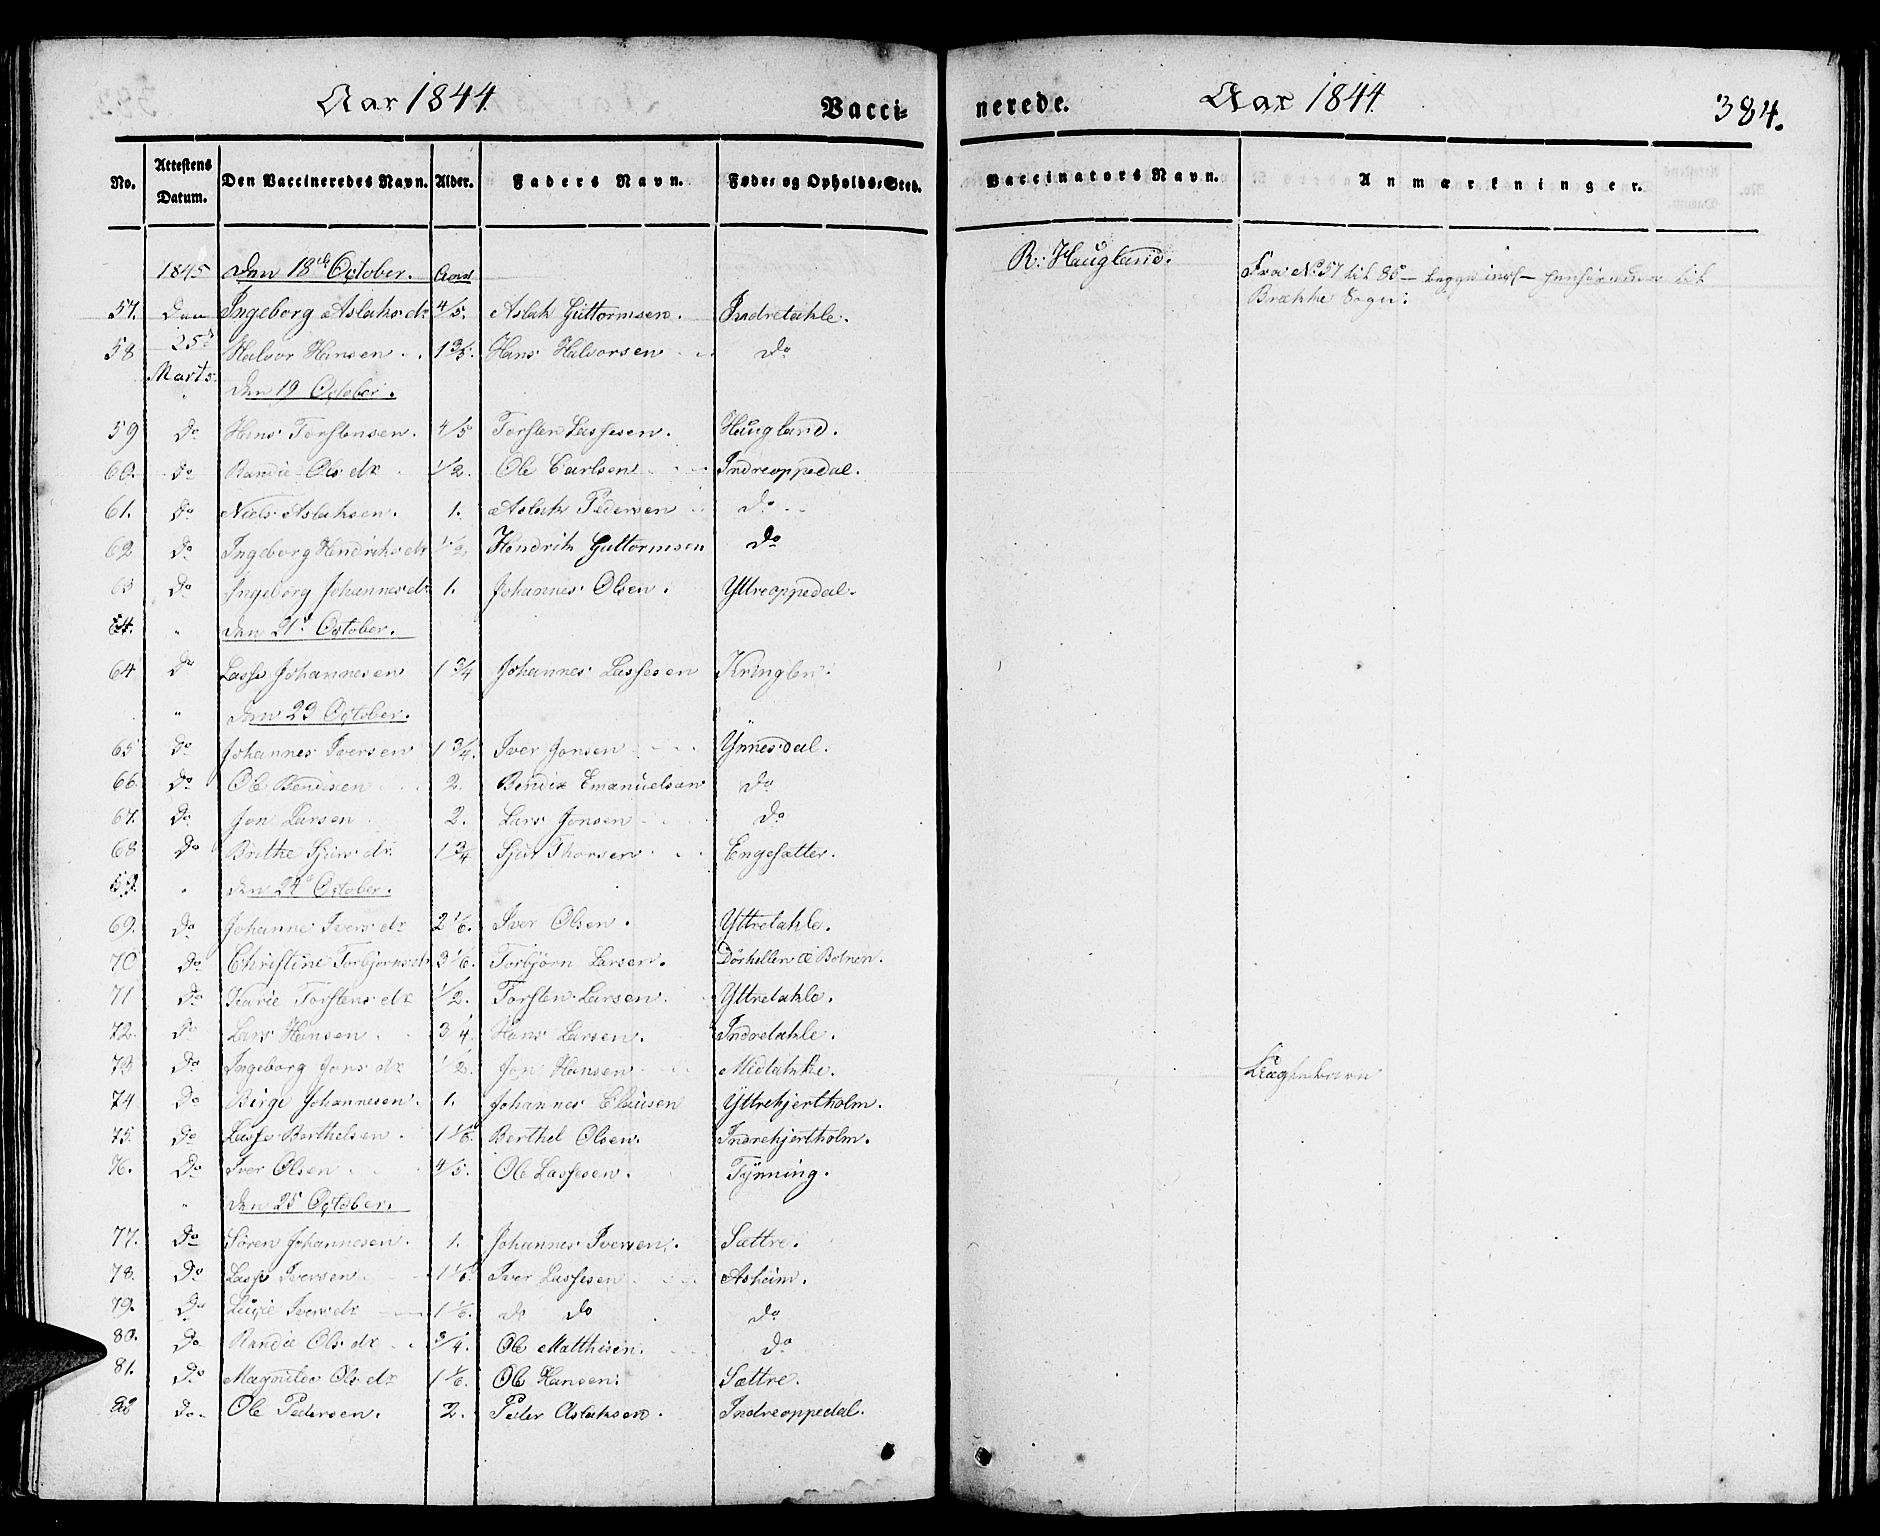 Aar 1844. Vaccinerede. Aar 1844. 384.
No. Attestens Datum. Den Vaccineredes Navn. Alder. Faders Navn. Føde- og Opholds-Sted. Vaccinators Navn. Anmærkninger.
1845 Den 18de October. Aar R: Haugland. Fra No 57 til 86 til
57. Den Ingeborg Aslaksdr 4/5. Aslak Guttormsen. Indretakle. Brække Sogn:
58 25de Marts Halvor Hansen 1 3/5. Hans Halvorsen Do
Den 19 October.
59 Do Hans Torstensen. 4/5 Torsten Lassesen. Haugland.
60. Do Randie Olsdr 1/2. Ole Carlsen Indreoppedal.
61. Do Niels Aslaksen. 1. Aslak Pedersen Do
62 Do Ingeborg Hendriksdr 1/2 Hendrik Guttormsen Do
63 Do Ingeborg Johannesdr 1. Johannes Olsen. Yttreoppedal.
64. " Den 21de October.
64 Do Lasse Johannesen 1 3/4 Johannes Lassesen Kringlen.
" Den 23 October.
65 Do Johannes Iversen 1 3/4. Iver Jonsen Ynnesdal.
66. Do Ole Bendixen 2. Bendix Emanuelsen Do
67. Do Jon Larsen 2. Lars Jonsen Do
68 Do Brithe Sjursdr. 1 3/4 Sjur Thorsen Engesætter.
59. " Den 24de October.
69. Do Johanne Iversdr 2 1/6. Iver Olsen. Yttretakle.
70 Do Christine Torbjørnsdr 3 1/6. Torbjörn Larsen. Dörhellen á Botnen.
71 Do Karie Torstensdr 1/2. Torsten Larsen. Yttretakle.
72. Do Lars Hansen 3/4. Hans Larsen. Indretakle.
73 Do Ingeborg Jonsdr 1/2. Jon Hansen Midtakle.
74 Do Birge Johannesen. 1. Johannes Clausen Yttrekjertholm.
75. Do Lasse Berthelsen. 1 1/6. Berthel Olsen. Indrekjertholm.
76. Do Iver Olsen 4/5. Ole Lassesen. Tynning.
" Den 25 October.
77. Do Sören Johannesen. 1. Johannes Iversen. Sættre.
78. Do Lasse Iversen 1 1/6. Iver Lassesen Asheim.
79. Do Iversdr 1 1/6. do do do
80. Do Randie Olsdr 3/4. Ole Matthisen. Do
81. Do Magnilde Olsdr 1 1/6. Ole Hansen. Sættre.
82 Do Ole Pedersen. 2. Peder Aslaksen. Indreoppedal.